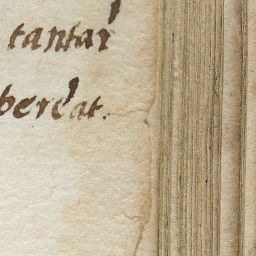 tantar
berèat.